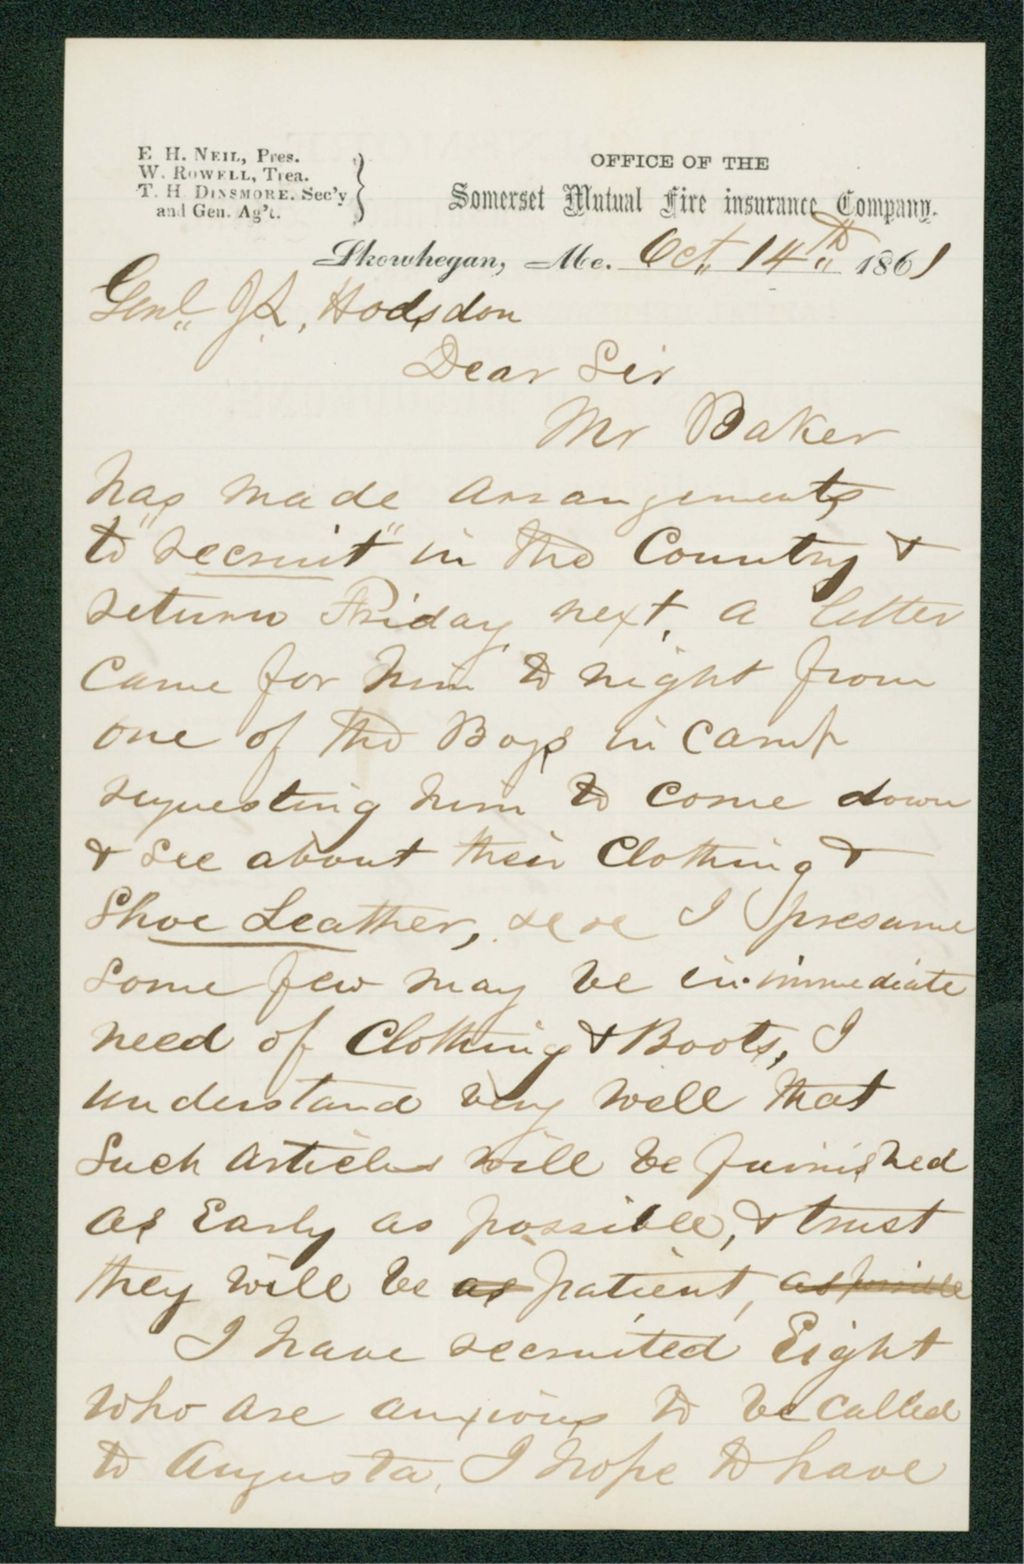 E H. NEIL, Pres.
W. ROWELL, Trea.
T. H. DINSMORE. Sec'y
and Gen. Ag't.
OFFICE OF THE
Somerset Mutual Fire insurance Company.
Skowhegan, Me. Oct 14th 1861
Genl J L, Hodsdon
Dear Sir
Mr Baker
has made arrangements
to "recruit" in the Country &
return Friday next, a letter
came for him to night from
one of the Boys in Camp
requesting him to come down
& see about their Clothing &
Shoe Leather, &c &c I presume
some few may be in immediate
need of Clothing & Boots, I
understand very well that
such articles will be furnished
as Early as possible, & trust
they will be as patient, as possible
I have recruited Eight
who are anxious to be called
to Augusta, I hope to have